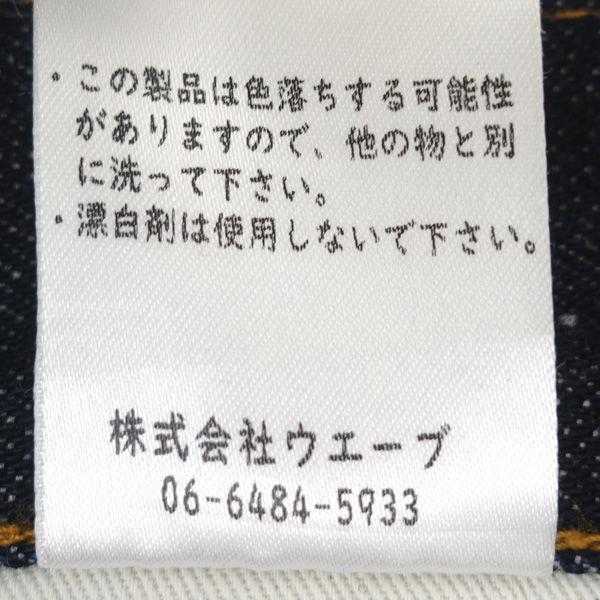 ・この製品は色落ちする可能性
がありますので、他の物と別
に洗って下さい。
・漂白剤は使用しないで下さい。
株式会社ウエーブ
06-6484-5933